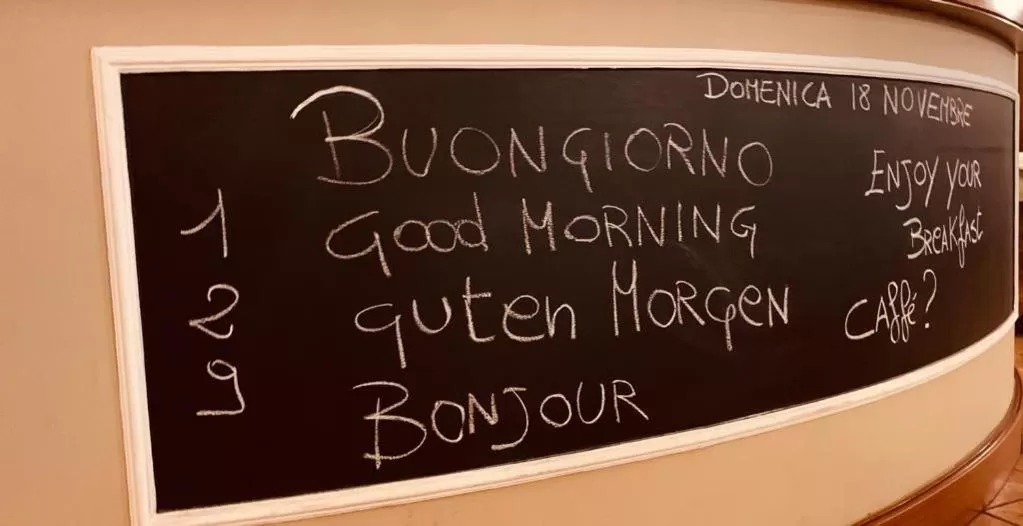 DOMENICA 18 NOVEMBRE
BUONGIORNO
1 Good MORNING
2 guten MORGEN
9 BONJOUR
ENJOY YOUR
BREAKfAST
CAffé?